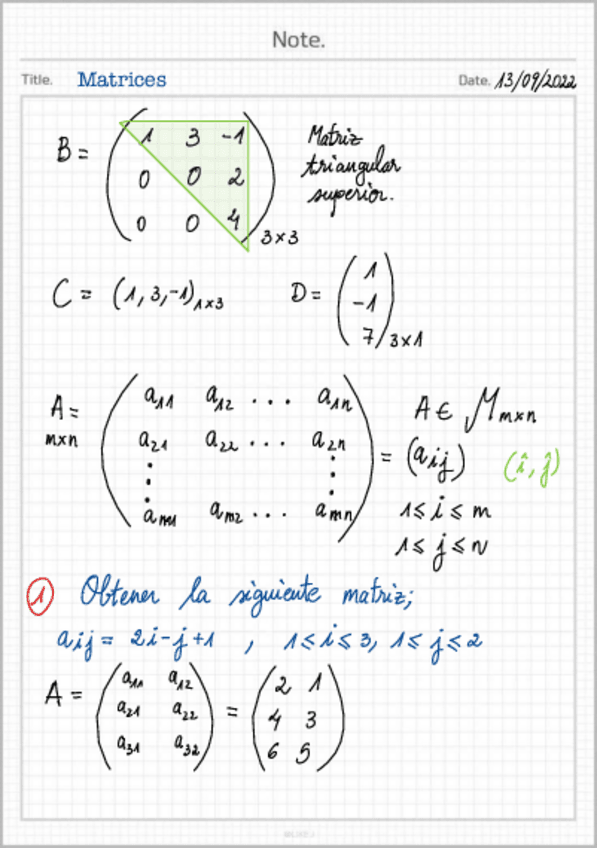 Note.
Title. Matrices Date. 13/09/2022
B = ( 1 3 -1
0 0 2
0 0 4 ) 3×3
Matriz
triangular
superior.
C = (1, 3, -1) 1×3
D = ( 1
-1
7 ) 3×1
A = m×n
( a11 a12 ... a1n
a21 a22 ... a2n
⋮ ⋮
am1 am2 ... amn )
A ∈ Mm×n
= (aij) (i, j)
1 ≤ i ≤ m
1 ≤ j ≤ n
1 Obtener la siguiente matriz;
aij = 2i-j+1 , 1 ≤ i ≤ 3, 1 ≤ j ≤ 2
A = ( a11 a12
a21 a22
a31 a32 )
= ( 2 1
4 3
6 5 )